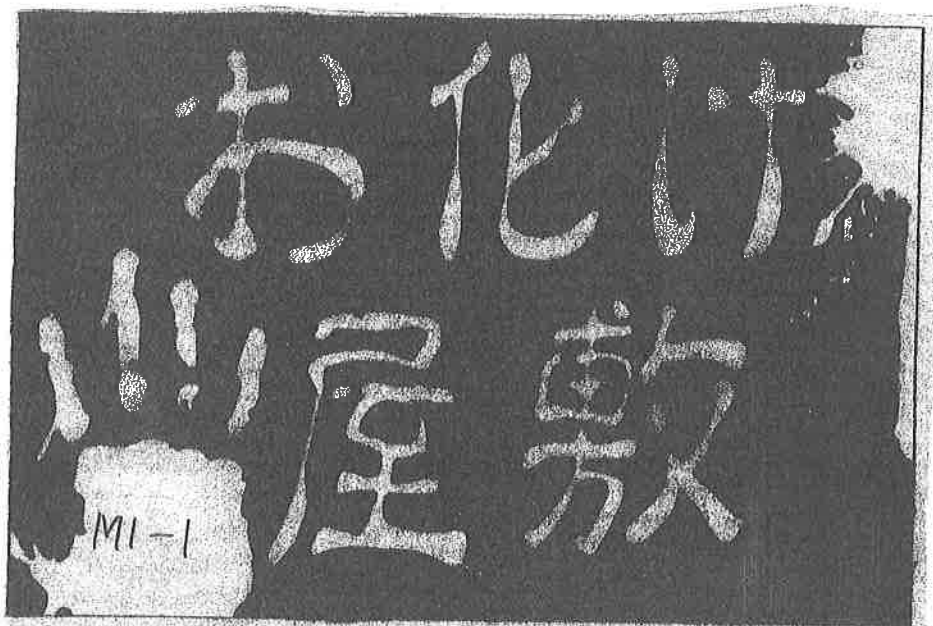 お化け
屋敷
M1-1